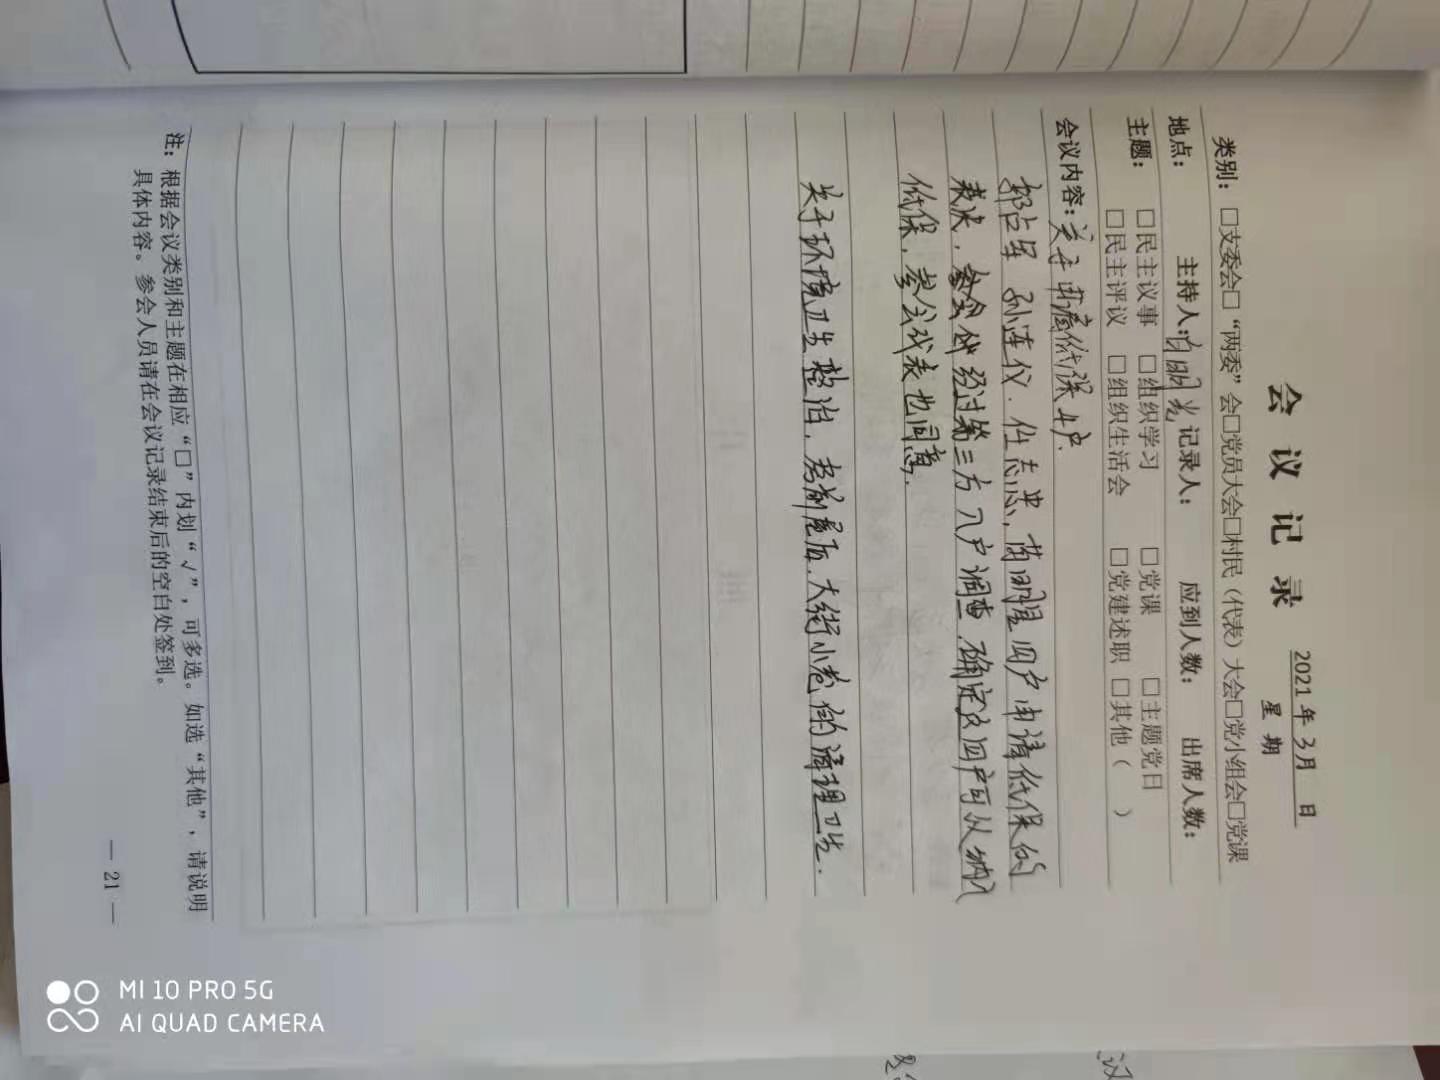 会议记录
2021年3月 日
星期
类别：□支委会□“两委”会□党员大会□村民（代表）大会□党小组会□党课
地点： 主持人： 明光 记录人： 应到人数： 出席人数：
主题： □民主议事 □组织学习 □党课 □主题党日
□民主评议 □组织生活会 □党建述职 □其他（ ）
会议内容：关于申请低保4户.
郭占军 孙连仪. 任志 . 明星四户申请低保的
表决. 经过第三方入户调查.确定这四户可以纳入
低保. 参会代表也同意.
关于环境卫生整治. 房前屋后.大街小巷 的清理卫生.
注：根据会议类别和主题在相应“□”内划“√”，可多选。如选“其他”，请说明
具体内容。参会人员请在会议记录结束后的空白处签到。
— 21 —
MI 10 PRO 5G
AI QUAD CAMERA